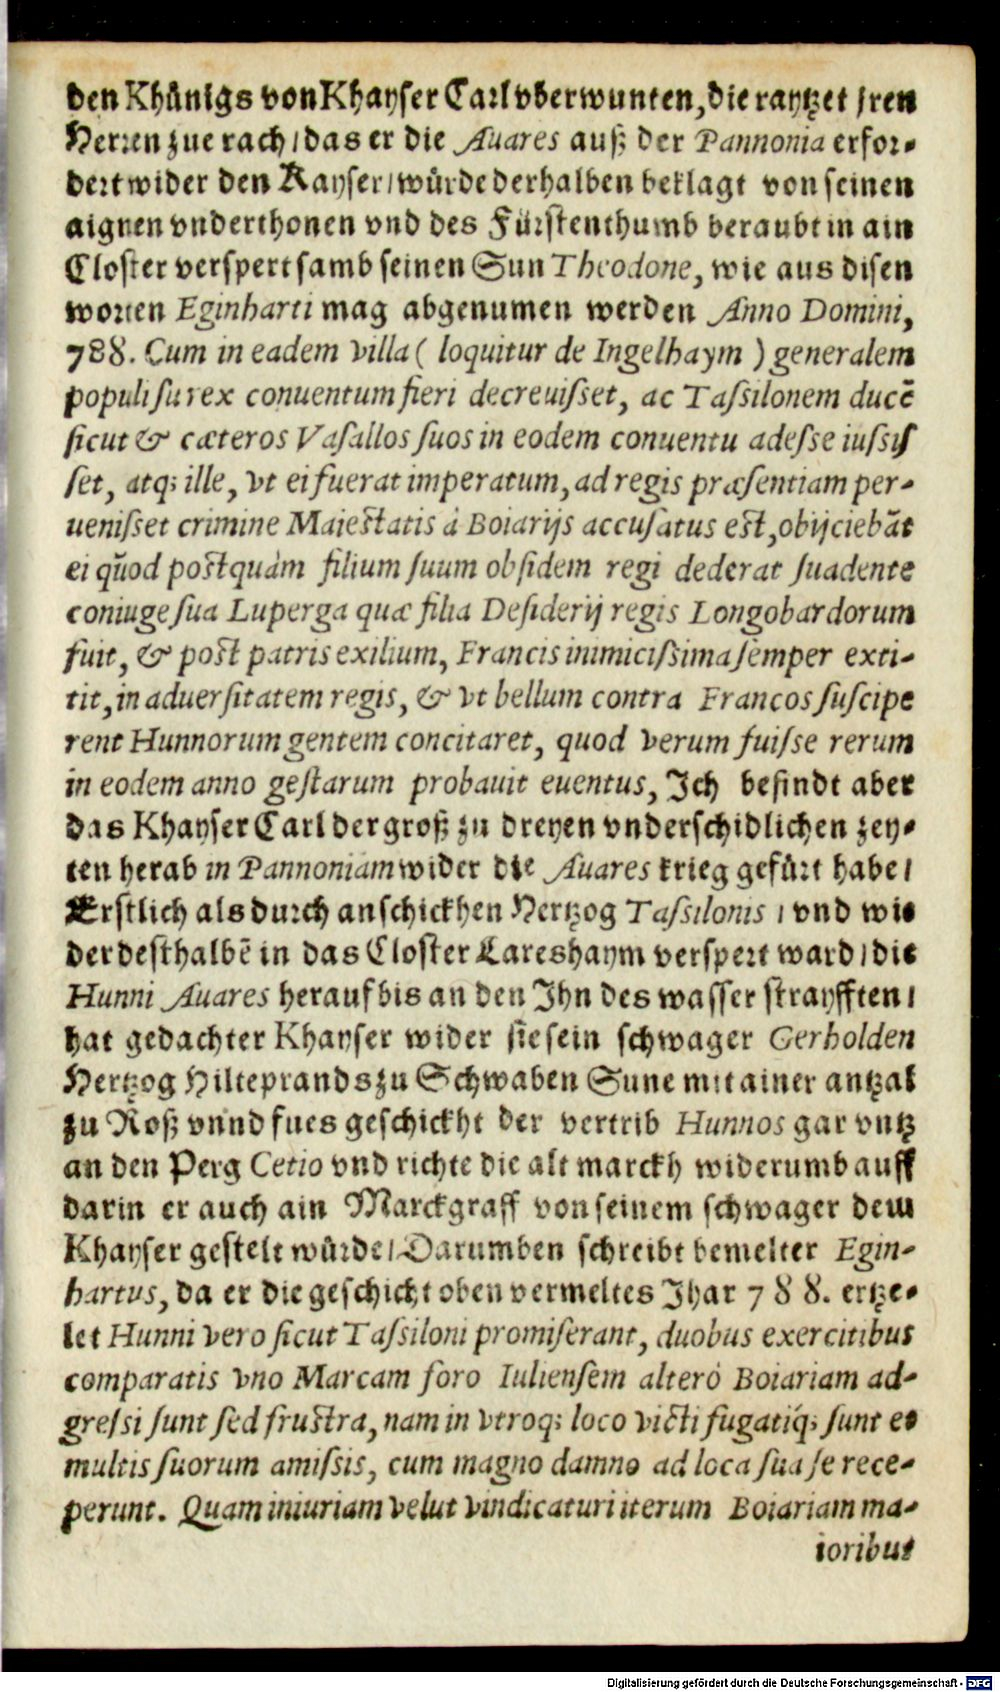 den Khünigs von Khayser Carl vberwunten, die raytzet jren
Herren zue rach / das er die Auares auß der Pannonia erfor-
dert wider den Kayser / würde derhalben beklagt von seinen
aignen vnderthonen vnd des Fürstenthumb beraubt in ain
Closter verspert samb seinen Sun Theodone, wie aus disen
worten Eginharti mag abgenumen werden Anno Domini,
788. Cum in eadem villa ( loquitur de Ingelhaym ) generalem
populi su rex conuentum fieri decreuisset, ac Tassilonem ducē
sicut & cæteros Vasallos suos in eodem conuentu adesse iussis
set, atq; ille, vt ei fuerat imperatum, ad regis præsentiam per-
uenisset crimine Maiestatis à Boiarijs accusatus est, obijciebāt
ei quod postquàm filium suum obsidem regi dederat suadente
coniuge sua Luperga quæ filia Desiderij regis Longobardorum
fuit, & post patris exilium, Francis inimicissima semper exti-
tit, in aduersitatem regis, & vt bellum contra Francos suscipe
rent Hunnorum gentem concitaret, quod verum fuisse rerum
in eodem anno gestarum probauit euentus, Ich befindt aber
das Khayser Carl der groß zu dreyen vnderschidlichen zey-
ten herab in Pannoniam wider die Auares krieg gefürt habe /
Erstlich als durch anschickhen Hertzog Tassilonis / vnd wie
der desthalbē in das Closter Lareshaym verspert ward / die
Hunni Auares herauf bis an den Ihn des wasser strayfften /
hat gedachter Khayser wider sie sein schwager Gerholden
Hertzog Hilteprands zu Schwaben Sune mit ainer antzal
zu Roß vnnd fues geschickht der vertrib Hunnos gar vntz
an den Perg Cetio vnd richte die alt marckh widerumb auff
darin er auch ain Marckgraff von seinem schwager dem
Khayser gestelt würde / Darumben schreibt bemelter Egin-
hartus, da er die geschicht oben vermeltes Jhar 788. ertze-
let Hunni vero sicut Tassiloni promiserant, duobus exercitibus
comparatis vno Marcam foro Iuliensem alterò Boiariam ad-
gressi sunt sed frustra, nam in vtroq; loco victi fugatiq́; sunt et
multis suorum amissis, cum magno damno ad loca sua se rece-
perunt. Quam iniuriam velut vindicaturi iterum Boiariam ma-
ioribus
Digitalisierung gefördert durch die Deutsche Forschungsgemeinschaft - DFG